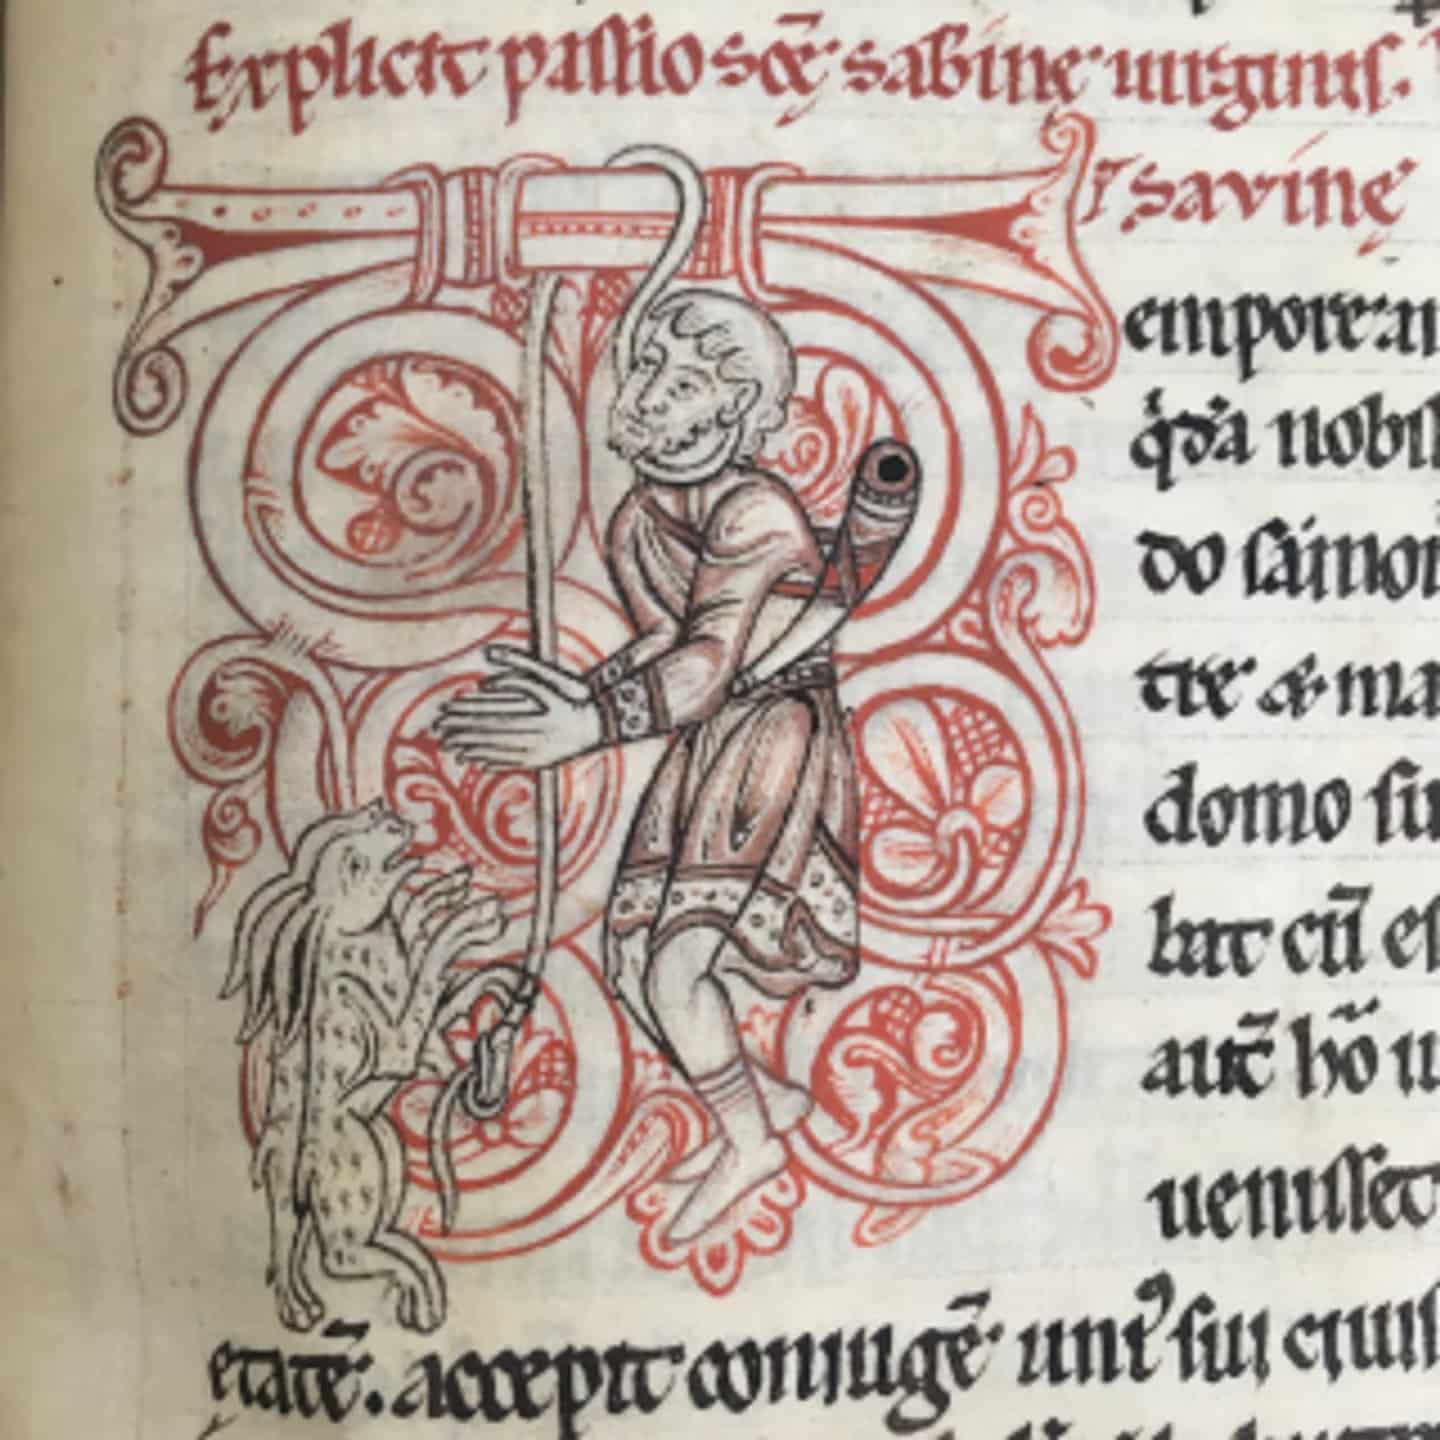 Explicit passio scē sabinę uirginis.
savinę
T empore
q̇dā nobil
do
tre & ma
domo su
bat cū es
aut̄ hō u
uenisset
etatē. accepit coniugē unī᾽ sui ciuis